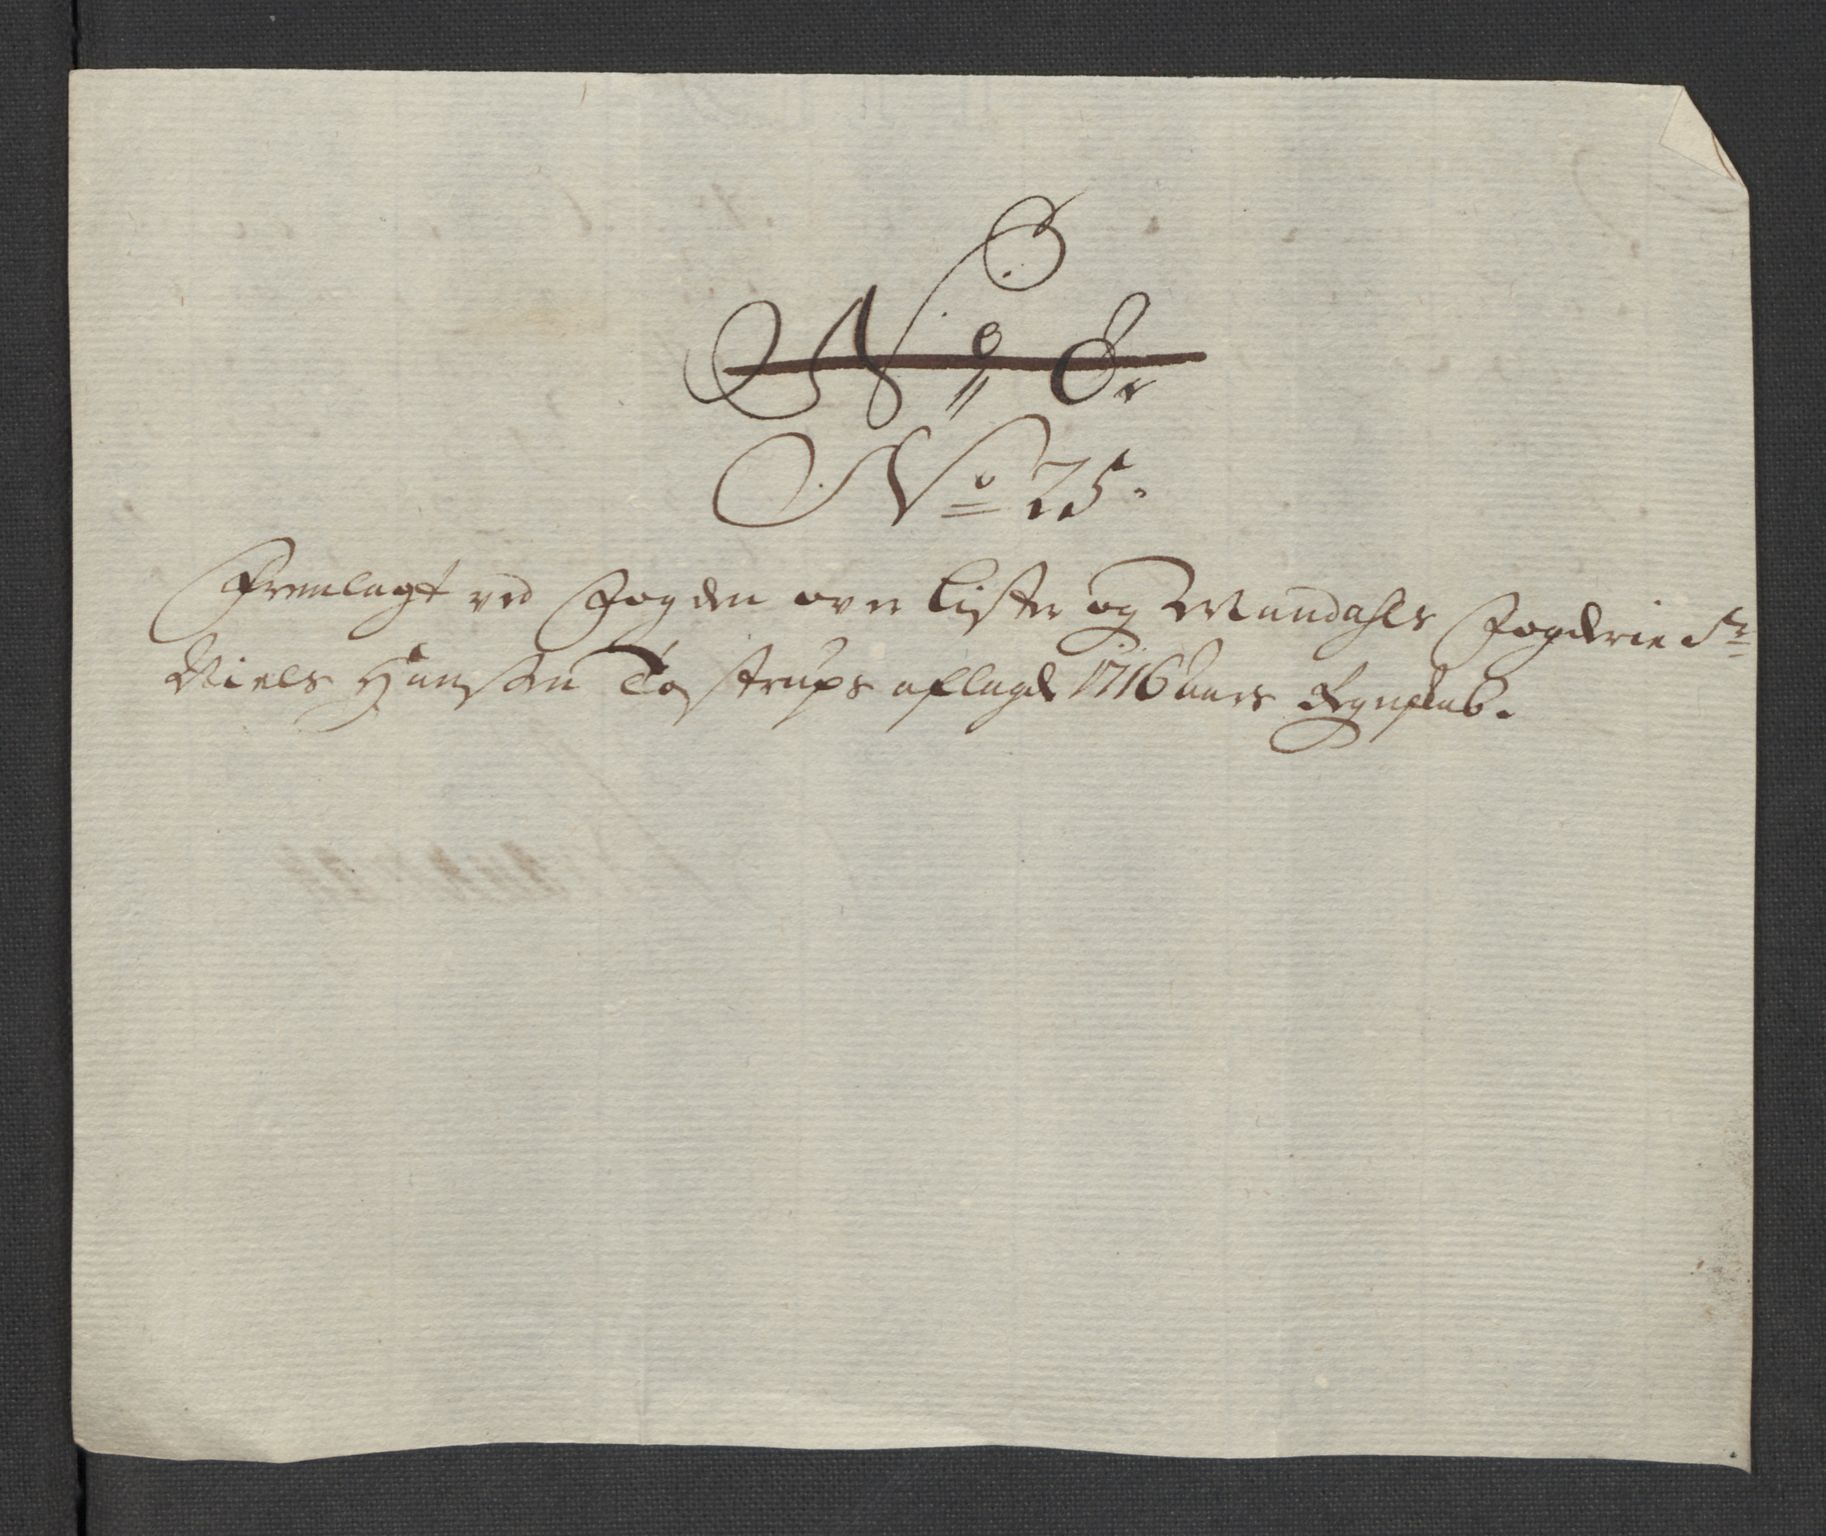 No
No 25.
Fremlagt ved Fogden over Lister og Mandahls Fogderie Sr
Niels Hansen Tostrups aflagde 1716 aars Regnskab.